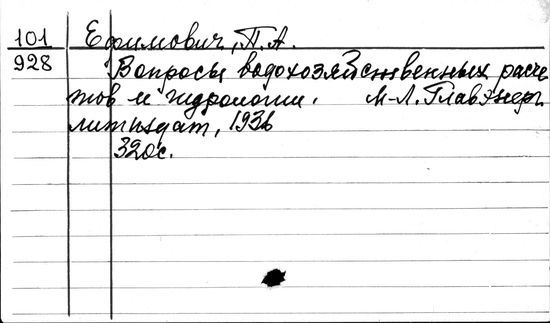 101 Ефимович, П. А.
928 Вопросы водохозяйственных расче
тов и гидрологии. М-Л. Главэнерг
литиздат, 1936
320с.